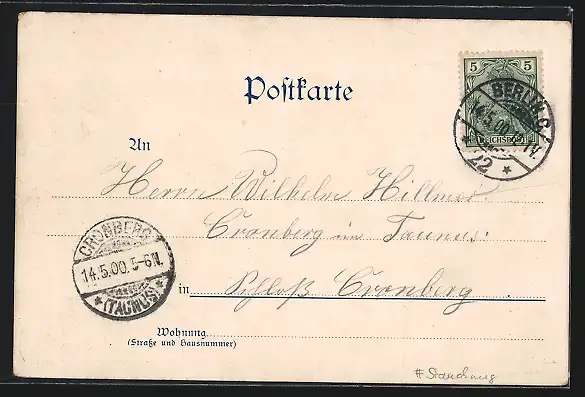 Postkarte
5 5
REICHSPOST
BERLIN, C.
14.5.00.
22
An
Herrn Wilhelm Hillmer.
Cronberg im Taunus.
CRONBERG
14.5.00. 5-6N.
(TAUNUS)
in Schloß Cronberg.
Wohnung
(Straße und Hausnummer)